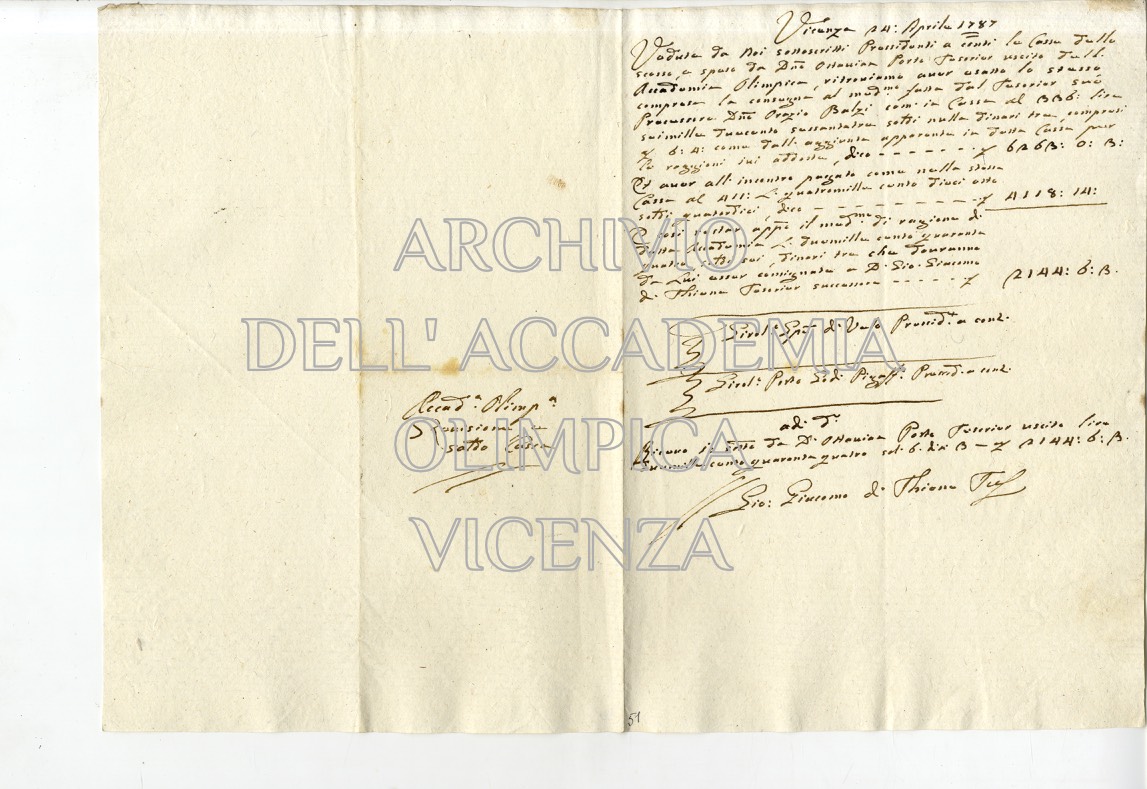 Vicenza 24: Aprile 1787
Veduta da Noi sottoscritti Presidenti a conti la Cassa delle
scosse, e spese da Dño Ottavian Porto Teserier uscito dell'
Accademia Olimpica, ritroviamo aver esatto lo stesso
compresa la consegna al medmo fatta dal Teserier suo
Precessore Dño Orazio Balzi com: in Cassa al BB6: lire
seimille duecento sessantatre soldi nulla dinari tre, compresi
6: 4: come dall' aggiunta apparente in detta Cassa per
le raggioni ivi addotte, dico - - - - - - 6263: 0: 3:
Et aver all' incontro pagato come nella stessa
Cassa al 411: L. quatromille cento dieci otto
soldi quatordici, dico - - - - - - 4118: 14:
E così restar appo il medmo di ragione di
detta Accademia L. duemille cento quaranta
quatro soldi sei, dinari tre che douranno
da Lui esser consignate a D. Gio: Giacomo
di Thiene Teserier successore - - - - - 2144: 6: 3.
Presidte a cont.
Porto Presid: a cont.
adi do
Ricevo io sotto da D: Ottavian Porto Teserier uscito lire
duemille cento quaranta quatro sol: 6: di: 3 - 2144: 6: 3.
Gio: Giacomo di Thiene Tes
Accada Olimpa
Revisione
soldo Cassa
51
ARCHIVIO
DELL'ACCADEMIA
OLIMPICA
VICENZA